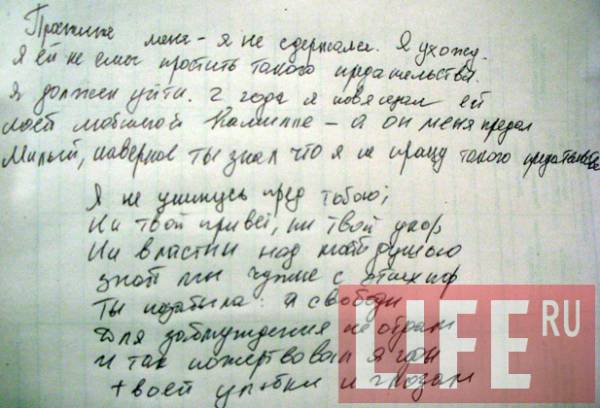 Простите меня - я не сдержался. Я ухожу.
Я ей не смог простить такого предательства.
Я должен уйти. 2 года я посвящал ей
моей любимой - а он меня предал
Милый, наверное ты знал что я не прощу такого предательства
Я не унижусь пред тобою;
Ни твой привет, ни твой укор
Не властны над моей душою
знай мы чужие с этих пор
Ты позабыла: я свободы
Для заблужденья не отдам
И так пожертвовал я годы
твоей улыбке и глазам
LIFE RU